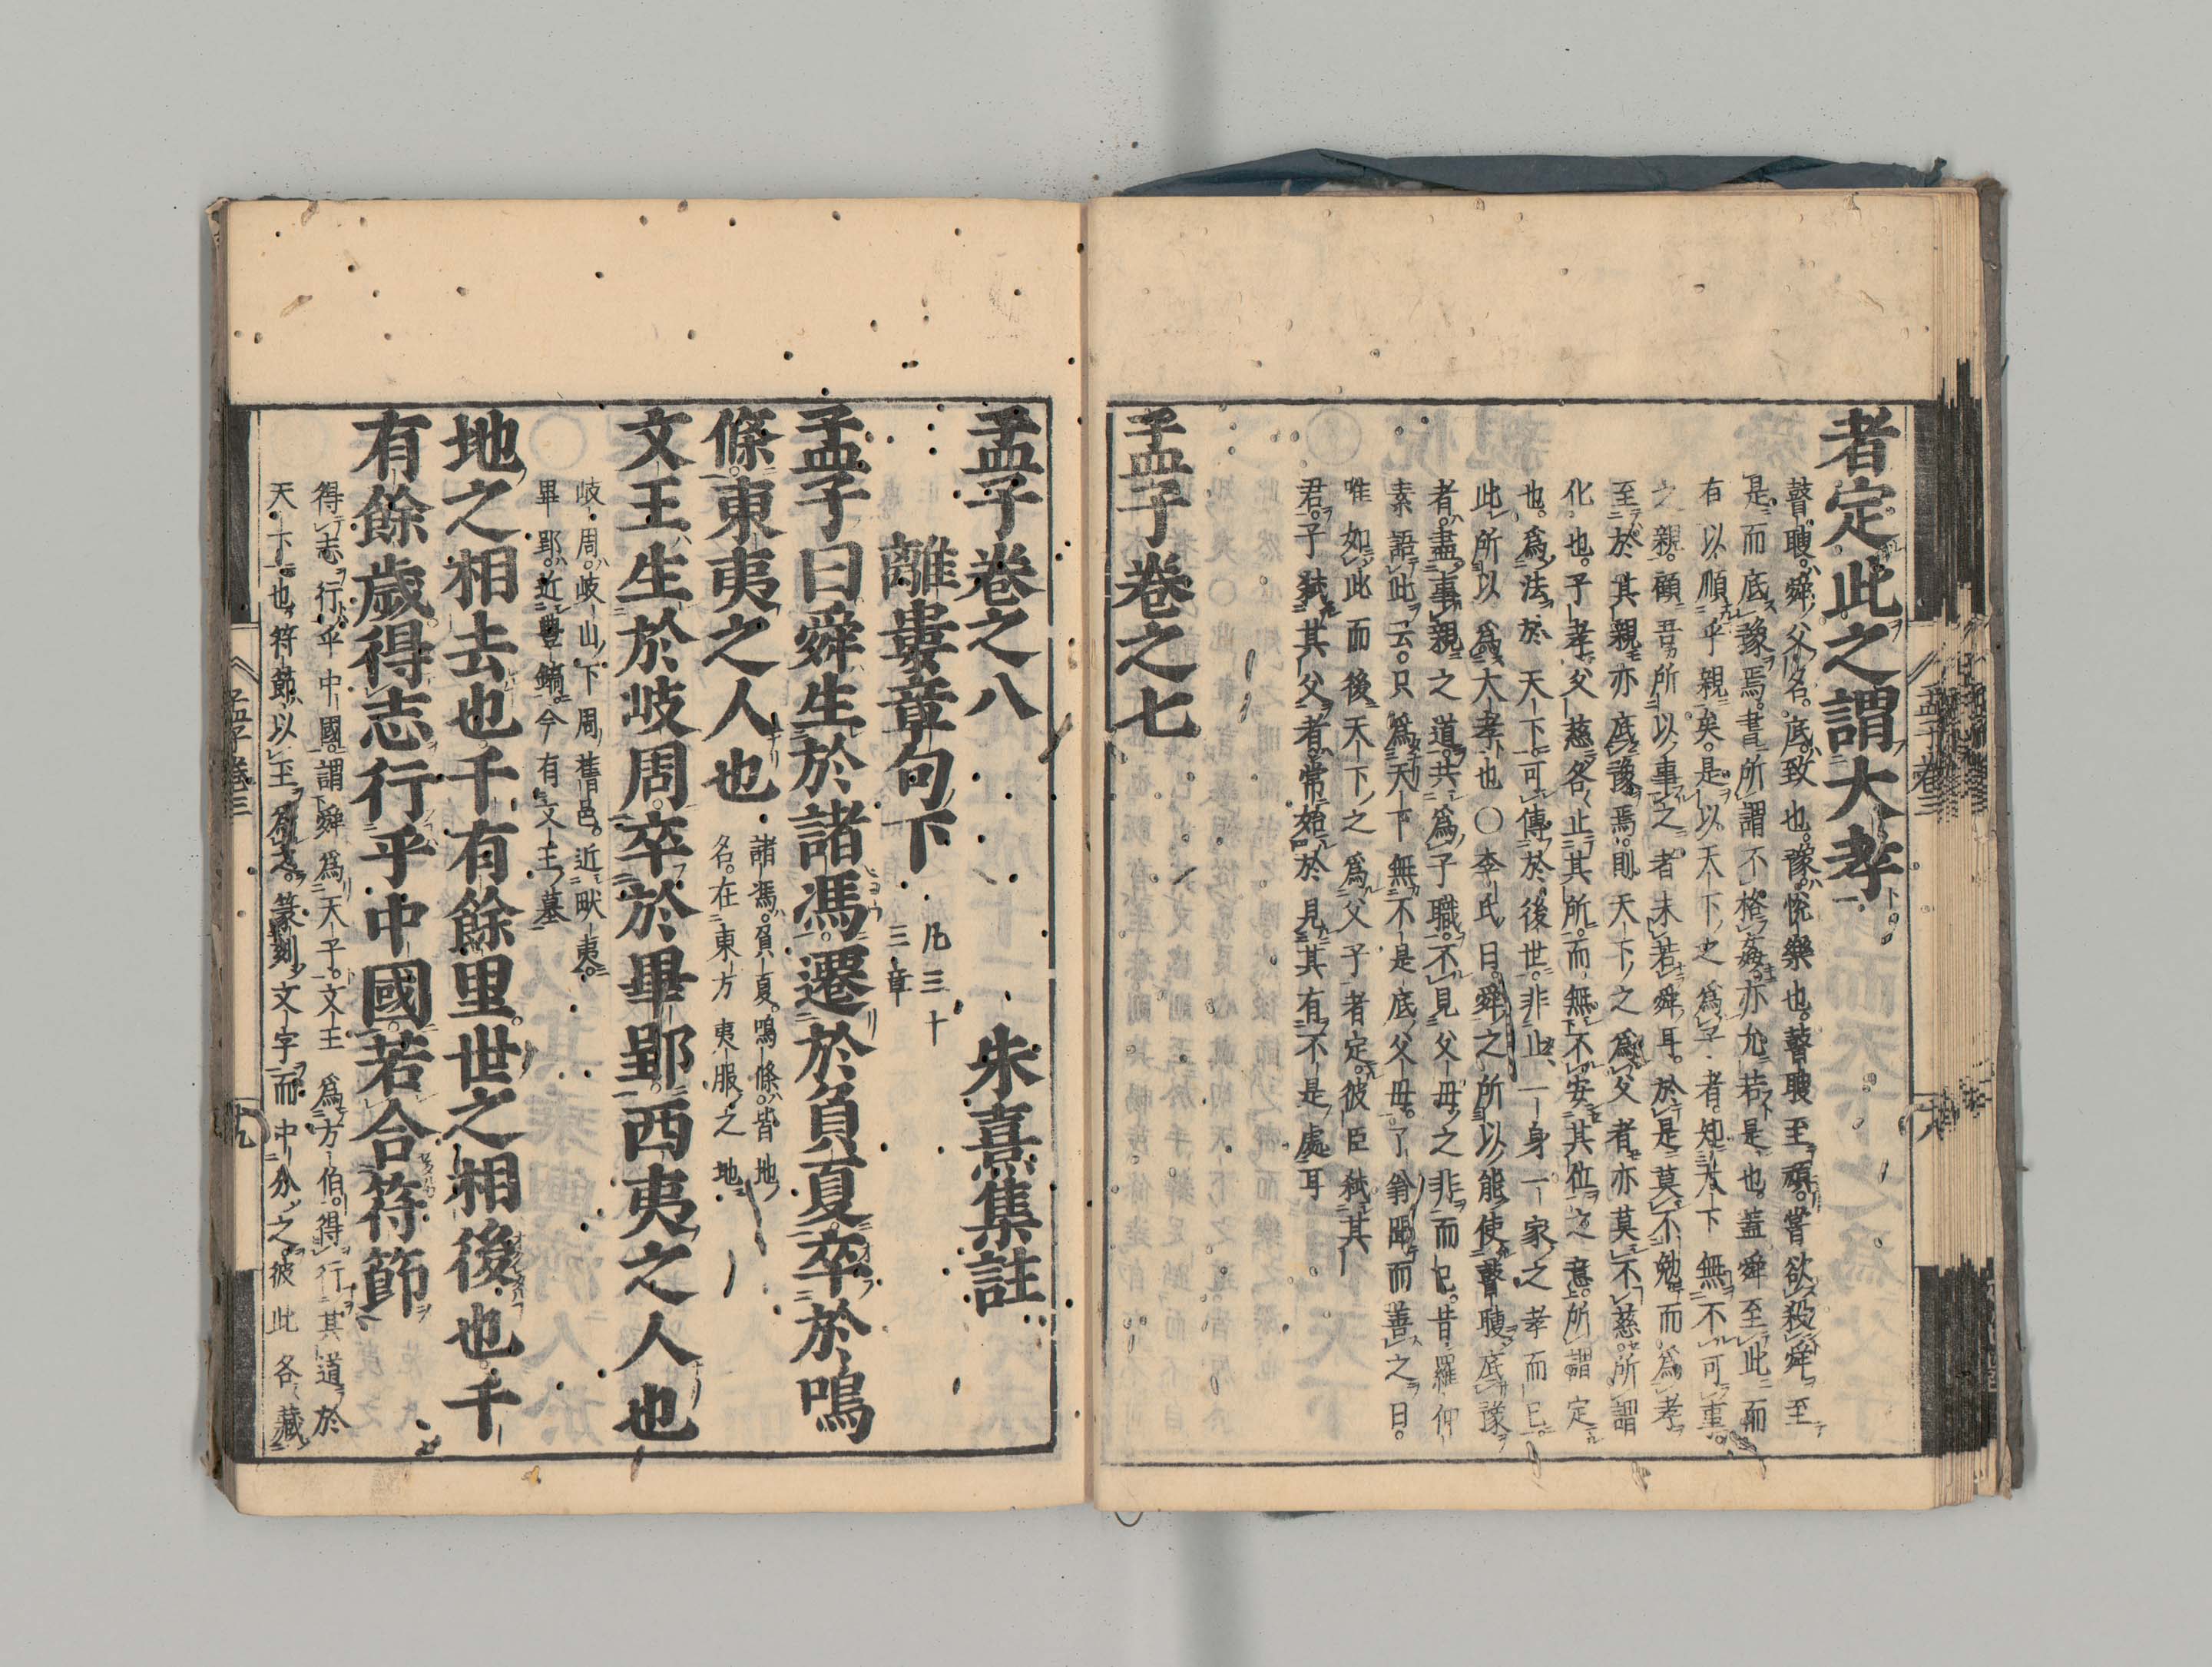 者定此之謂大孝
瞽瞍舜父名底致也豫悅樂也瞽瞍至頑嘗欲殺舜至
是而底豫焉書所謂不格姦亦允若是也蓋舜至此而
有以順乎親矣是以天下之爲子者知天下無不可事
之親顧吾所以事之者未若舜耳於是莫不勉而爲孝
至於其親亦底豫焉則天下之爲父者亦莫不慈所謂
化也子孝父慈各止其所而無不安其位之意所謂定
也爲法於天下可傳於後世非止一身一家之孝而已
此所以爲大孝也〇李氏曰舜之所以能使瞽瞍底豫
者盡事親之道共爲子職不見父母之非而已昔羅仲
素語此云只爲天下無不是底父母了翁聞而善之曰
唯如此而後天下之爲父子者定彼臣弑其
君子弑其父者常始於見其有不是處耳
孟子卷之七
孟子卷三
十八
孟子卷之八
朱熹集註
離婁章句下
凡三十
三章
孟子曰舜生於諸馮遷於負夏卒於鳴
條東夷之人也
諸馮負夏鳴條皆地
名在東方夷服之地
文王生於岐周卒於畢郢西夷之人也
岐周岐山下周舊邑近畎夷
畢郢近豐鎬今有文王墓
地之相去也千有餘里世之相後也千
有餘歲得志行乎中國若合符節
得志行乎中國謂舜爲天子文王爲方伯得行其道於
天下也符節以玉爲之篆刻文字而中分之彼此各藏
孟子卷三